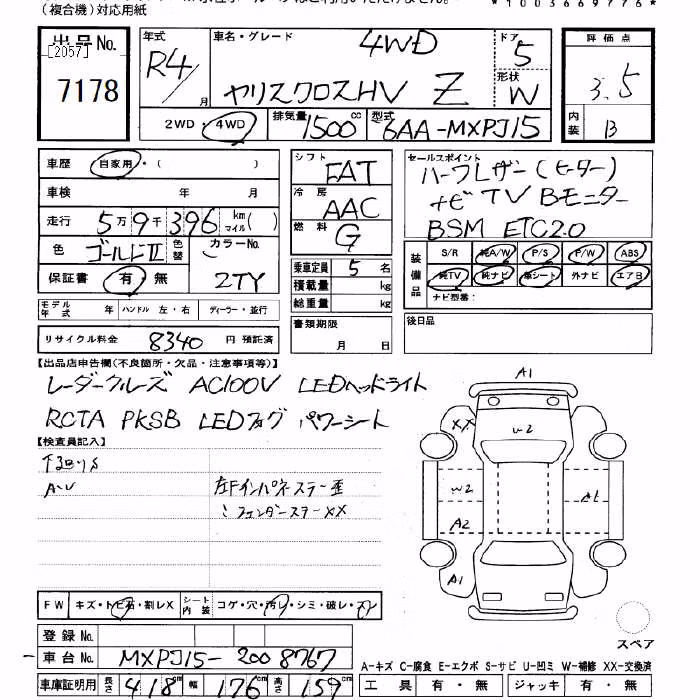 (複合機)対応用紙
*1003669776*
出品No. [2057] 7178
年式 R4/月
車名・グレード 4WD ヤリスクロスHV Z
ドア 5
形状 W
評価点 3.5
内装 B
2WD・4WD 排気量 1500cc 型式 6AA-MXPJ15
車歴 自家用・( )
車検 年 月
走行 5万9千396km マイル( )
色 ゴールドII 色替 カラーNo. 2TY
保証書 有・無
モデル年式 年 ハンドル 左・右 ディーラー・並行
リサイクル料金 8340 円 預託済
シフト FAT
冷房 AAC
燃料 G
乗車定員 5名
積載量 kg
総重量 kg
書類期限 月 日
セールスポイント ハーフレザー(ヒーター)
ナビ TV Bモニター
BSM ETC2.0
装備品 S/R 純A/W P/S P/W ABS
純TV 純ナビ 革シート 外ナビ エアB
ナビ型番:
後日品
【出品店申告欄(不良箇所・欠品・注意事項等)】
レーダークルーズ AC100V LEDヘッドライト
RCTA PKSB LEDフォグ パワーシート
【検査員記入】
下回りS
A〜U
左Fインパネステー歪
〃フェンダーステーXX
FW キズ・トビ石・割レX シート内装 コゲ・穴・汚レ・シミ・破レ・スレ
登録No.
車台No. MXPJ15-2008767
車庫証明用 長さ 418cm 幅 176cm 高さ 159cm
A1
XX
W2
W2
A2
A1
A1
スペア
A-キズ C-腐食 E-エクボ S-サビ U-凹ミ W-補修 XX-交換済
工具 有・無 ジャッキ 有・無